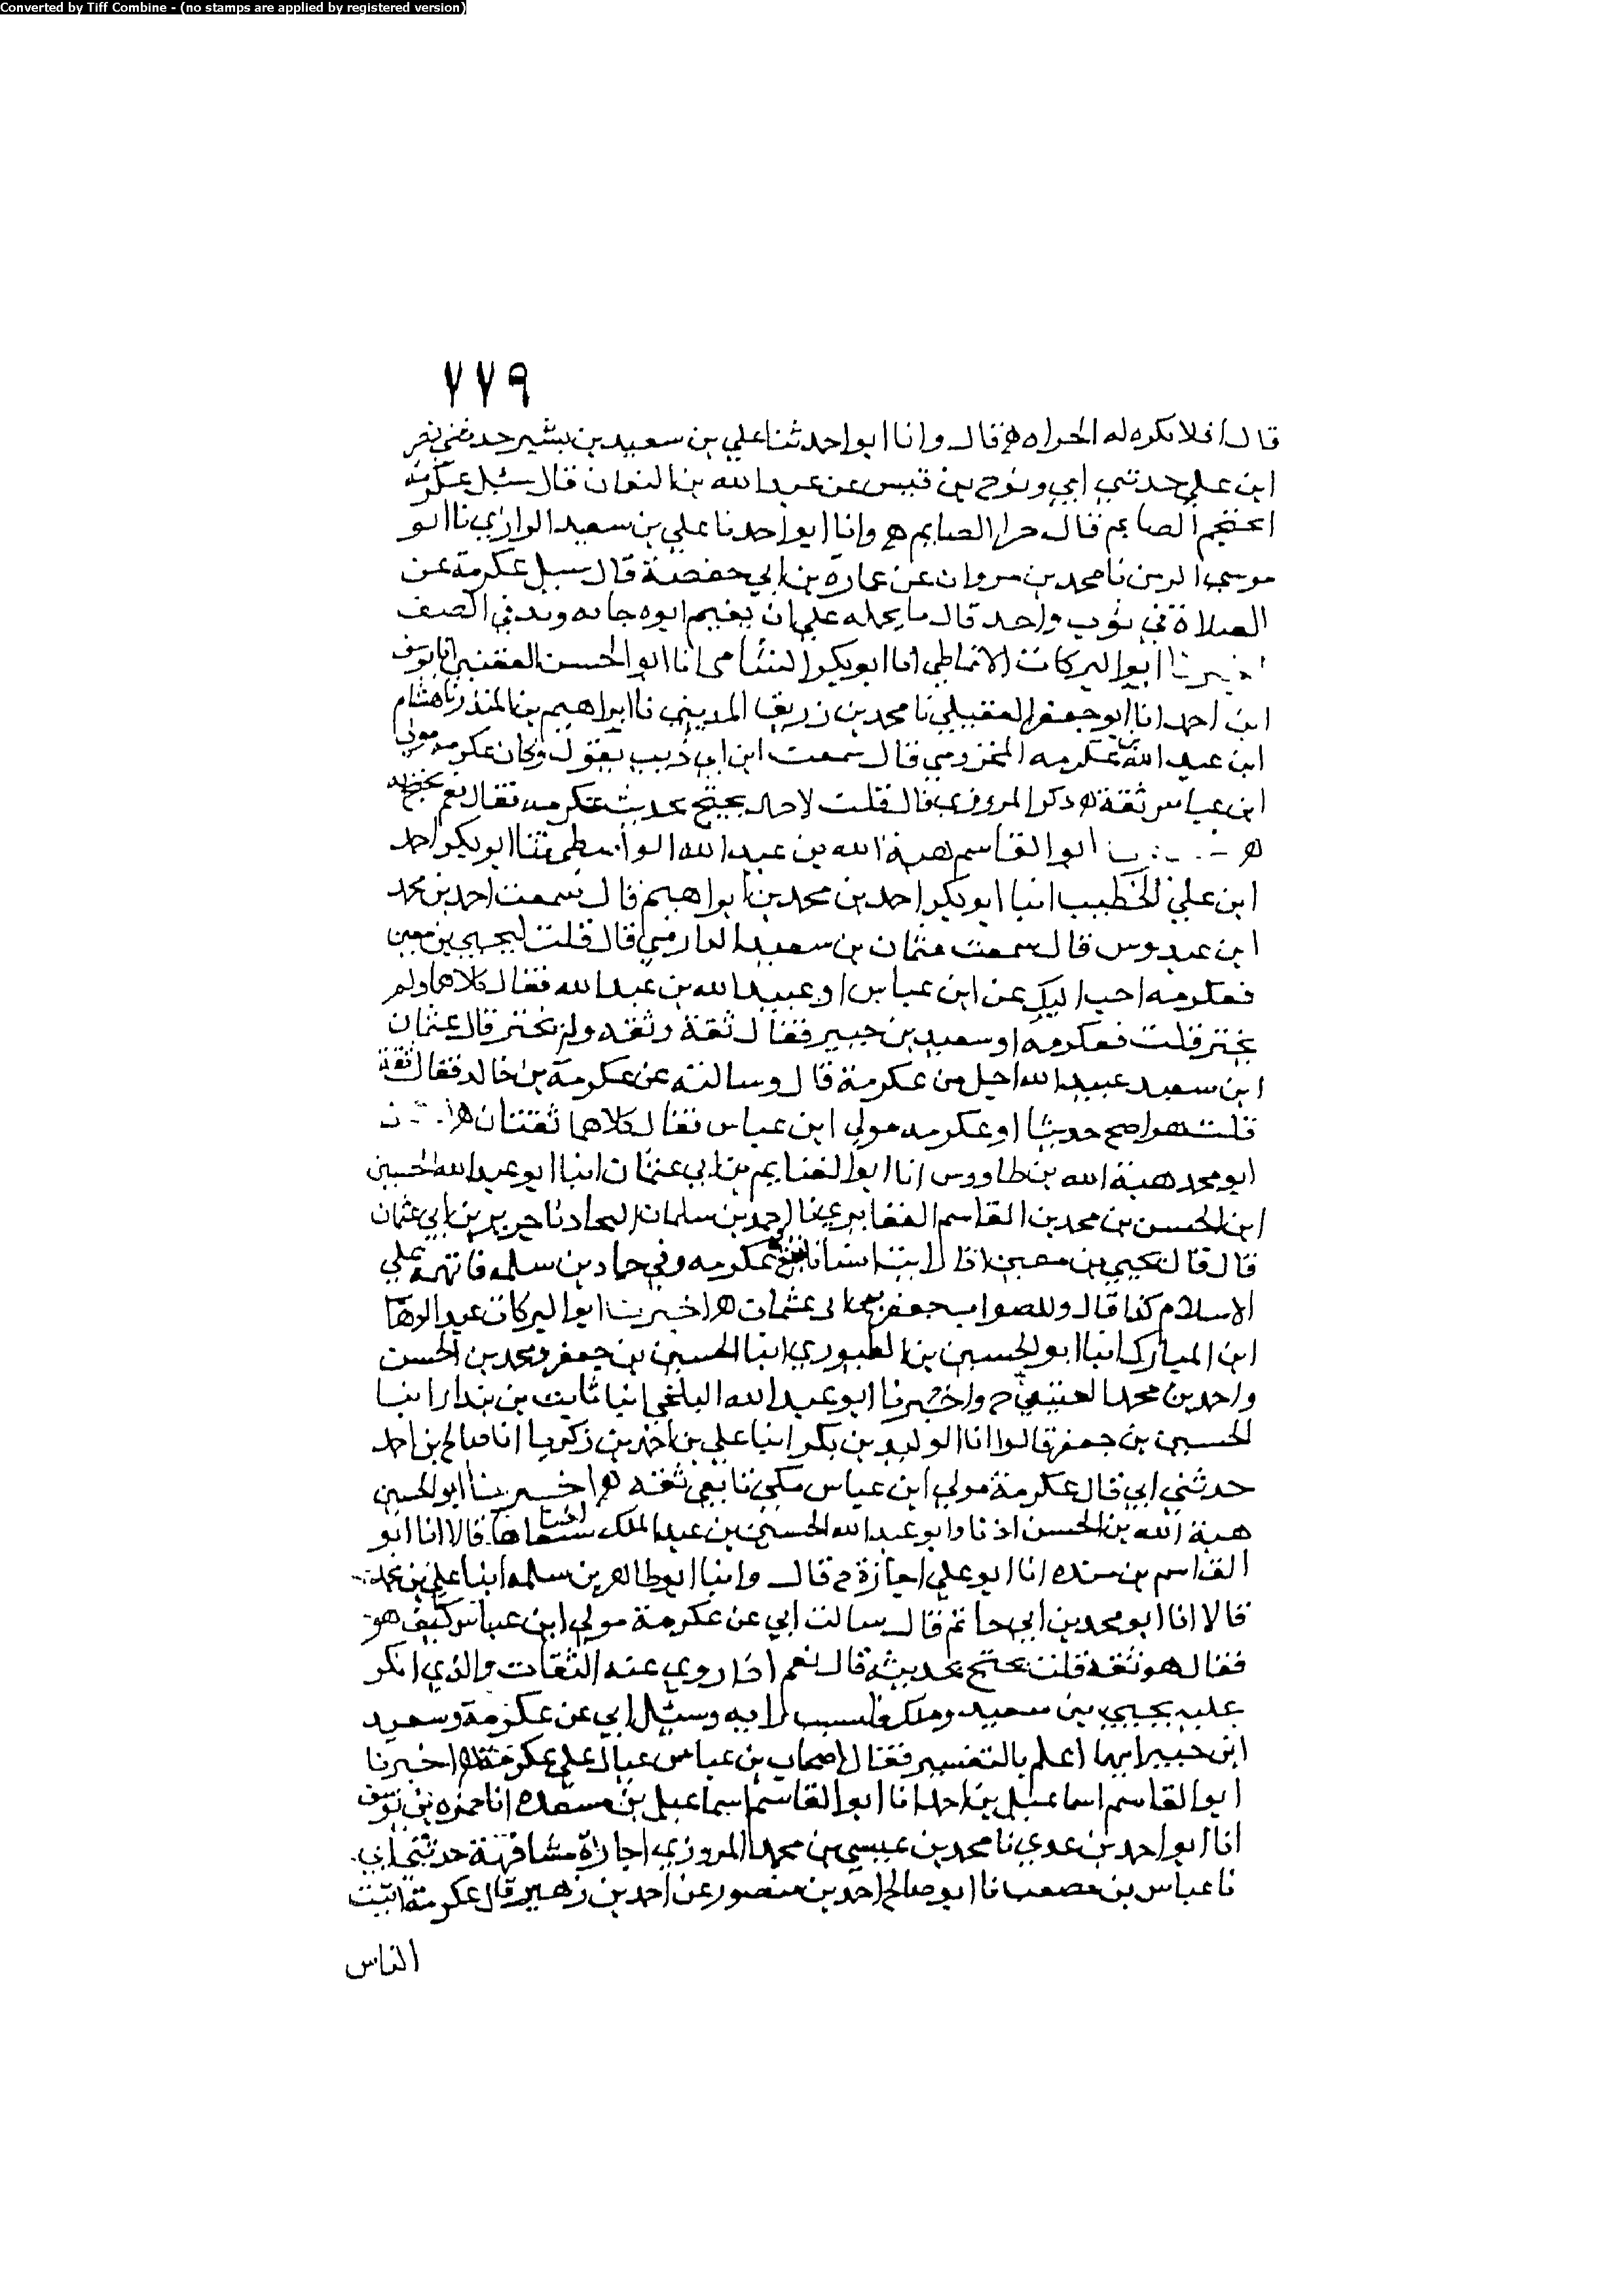 Converted by Tiff Combine - (no stamps are applied by registered version)
٧٧٩
قال افلا نكره له الحراه ه قال وانا ابو احمد ثنا علي بن سعيد بن بشير حدثني نصر
ابن علي حدثني ابي ونوح بن قيس عن عبد الله بن النعمان قال سئل عكرمة
الصايم قال الصايم ه وانا ابو احمد نا علي بن سعيد الرازي نا ابو
موسى الزمن نا محمد بن مروان عن عمارة بن ابي حفصة قال سيل عكرمة عن
الصلاة في ثوب واحد قال ما يحمله على ان يقيم في الصف
اخبرنا ابو البركات الانماطي انا ابو بكر الشامي انا ابو الحسن العتيقي انا يوسف
ابن احمد انا ابو جعفر العقيلي نا محمد بن زريق المديني نا ابراهيم بن المنذر نا هشام
ابن عبد الله بن عكرمه المخزومي قال سمعت ابن ابي ذيب يقول وكان عكرمه مولى
ابن عباس ثقة ه ذكر المروزي قال قلت لاحمد يحتج بحديث عكرمه فقال نعم يحتج به
ه ابو القاسم هبة الله بن عبد الله الواسطي ثنا ابو بكر احمد
ابن علي الخطيب انبا ابو بكر احمد بن محمد بن ابراهيم قال سمعت احمد بن محمد
ابن عبدوس قال سمعت عثمان بن سعيد الدارمي قال قلت ليحيى بن معين
فعكرمه احب اليك عن ابن عباس او عبيد الله بن عبد الله فقال كلاهما ولم
يختر قلت فعكرمه او سعيد بن جبير فقال ثقة وثقه ولم يختر قال عثمان
ابن سعيد عبيد الله اجل من عكرمة قال وسالته عن عكرمة بن خالد فقال ثقة
قلت هو اصح حديثا او عكرمه مولى ابن عباس فقال كلاهما ثقتان ه
ابو محمد هبة الله بن طاووس انا ابو الغنايم بن ابي عثمان انبا ابو عبد الله الحسين
ابن الحسن بن محمد بن القاسم الغضايري نا احمد بن سلمان النجاد نا جرير بن ابي عثمان
قال قال يحيى بن معين اذا رايت انسانا يقع في عكرمه وفي حماد بن سلمه فاتهمه على
الاسلام كذا قال والصواب جعفر بن ابي عثمان ه اخبرنا ابو البركات عبد الوهاب
ابن المبارك انبا ابو الحسين بن الطيوري انبا الحسين بن جعفر ومحمد بن الحسن
واحمد بن محمد العتيقي ح واخبرنا ابو عبد الله البلخي انبا ثابت بن بندار انبا
الحسين بن جعفر قالوا انا الوليد بن بكر انبا علي بن احمد بن زكريا انا صالح بن احمد
حدثني ابي قال عكرمة مولى ابن عباس مكي تابعي ثقه ه اخبرنا ابو الحسين
هبة الله بن الحسن اذنا وابو عبد الله الحسين بن عبد الملك شفاها قالا انا ابو
القاسم بن منده انا ابو علي اجازة ح قال وانبا ابو طاهر بن سلمه انبا علي بن محمد
قالا انا ابو محمد بن ابي حاتم قال سالت ابي عن عكرمة مولى ابن عباس كيف هو
فقال هو ثقة قلت يحتج بحديثه قال نعم اذا روى عنه الثقات والذي انكر
عليه يحيى بن سعيد ومالك فلسبب رايه وسيل ابي عن عكرمة وسعيد
ابن جبير ايهما اعلم بالتفسير فقال اصحاب بن عباس عيال على عكرمة ه اخبرنا
ابو القاسم اسماعيل بن احمد انا ابو القاسم اسماعيل بن مسعده انا حمزه بن يوسف
انا ابو احمد بن عدي نا محمد بن عيسى بن محمد المروزي اجازة مشافهة حدثني ابي
نا عباس بن مصعب نا ابو صالح احمد بن منصور عن احمد بن زهير قال عكرمة اثبت
الناس